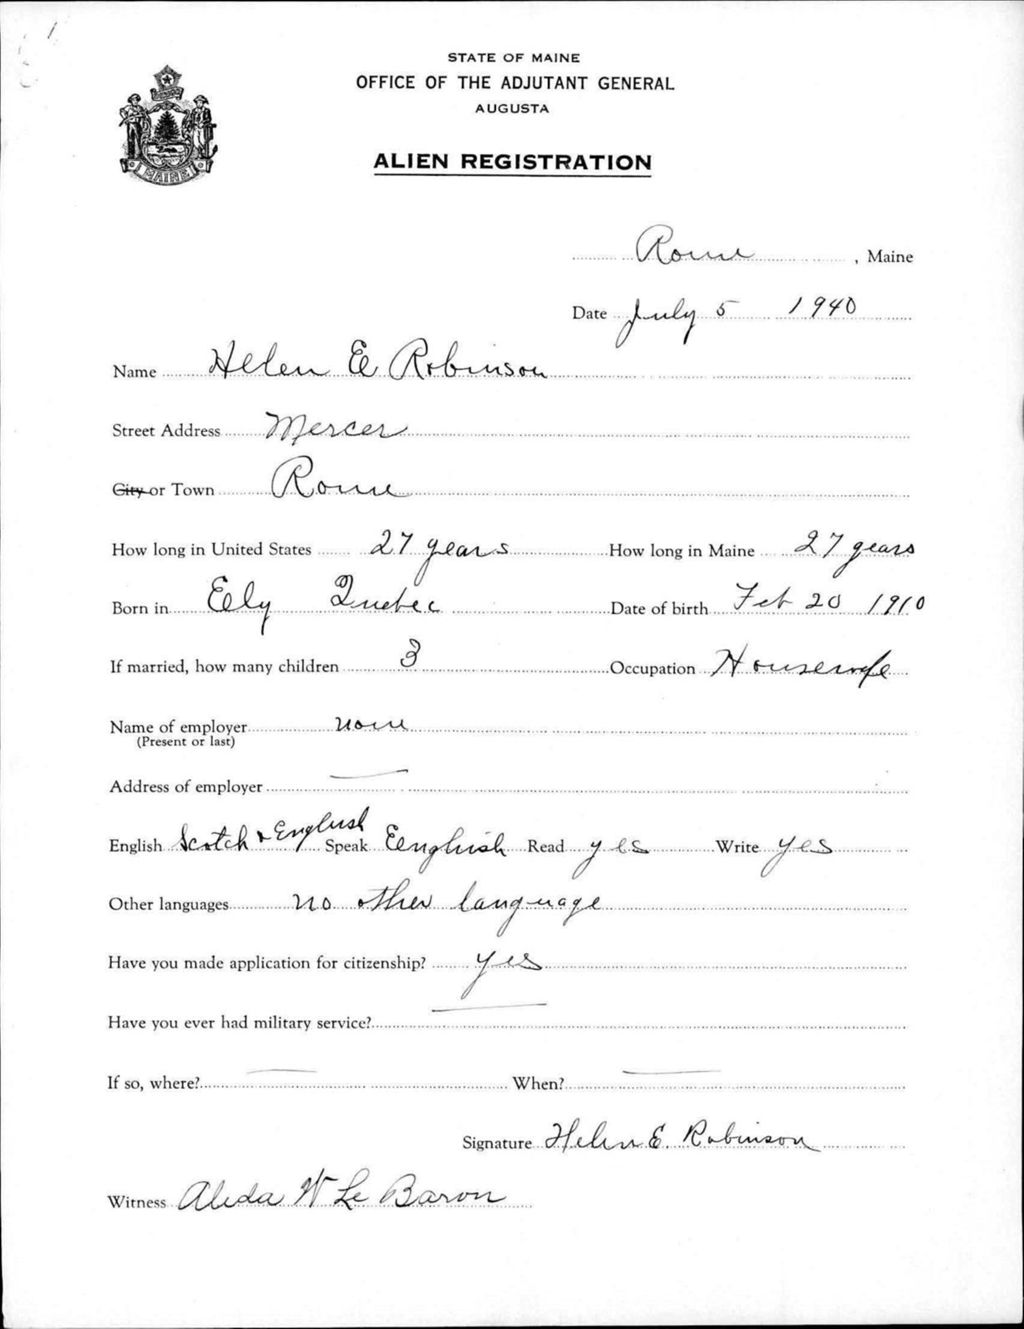 STATE OF MAINE
OFFICE OF THE ADJUTANT GENERAL
AUGUSTA
MAINE
ALIEN REGISTRATION
Rome, Maine
Date July 5 1940
Name Helen E Robinson
Street Address Mercer
City or Town Rome
How long in United States 27 years How long in Maine 27 years
Born in Ely Quebec Date of birth Feb 20 1910
If married, how many children 3 Occupation Housewife
Name of employer none
(Present or last)
Address of employer —
English Scotch & English Speak Eenglish Read yes Write yes
Other languages no other language
Have you made application for citizenship? yes
Have you ever had military service? —
If so, where? — When? —
Signature Helen E. Robinson
Witness Aleda W Le Baron